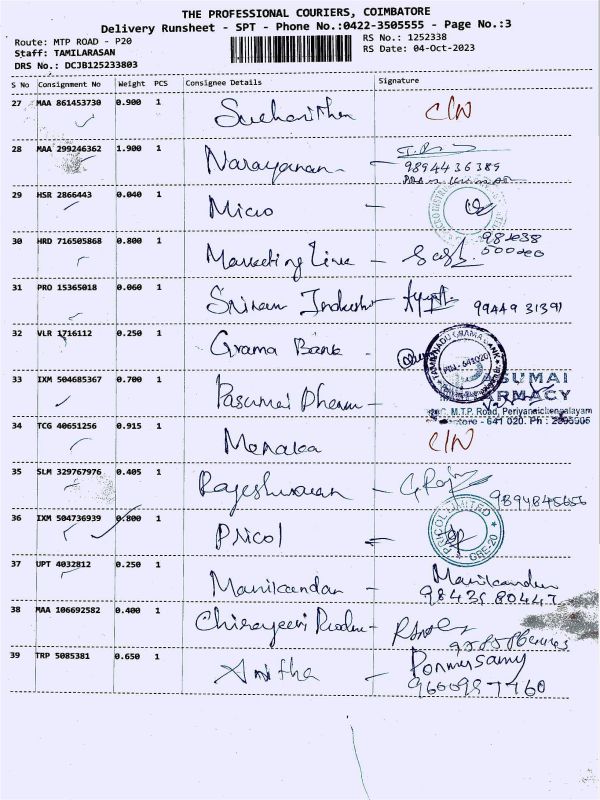 THE PROFESSIONAL COURIERS, COIMBATORE
Delivery Runsheet - SPT - Phone No.:0422-3505555 - Page No.:3
Route: MTP ROAD - P20
Staff: TAMILARASAN
DRS No.: DCJB125233803
RS No.: 1252338
RS Date: 04-Oct-2023
S No Consignment No Weight PCS Consignee Details Signature
27 MAA 861453730 0.900 1 C/N
28 MAA 299246362 1.900 1 Narayanan
9894436389
29 HSR 2866443 0.040 1 Micro
30 HRD 716505868 0.800 1 Marketing Line
31 PRO 15365018 0.060 1 Sriram 99449 31391
32 VLR 1716112 0.250 1 Grama Bank
TAMILNADU GRAMA BANK
641020
33 IXM 504685367 0.700 1 Pasumai Pharm
PASUMAI
PHARMACY
M.T.P. Road, Periyanaickenpalayam
- 641 020. Ph :
34 TCG 40651256 0.915 1 Menaka C/N
35 SLM 329767976 0.405 1 Rajeshwaran
9894845656
36 IXM 504736939 0.800 1 Pricol
PRICOL LIMITED
CBE-20
37 UPT 4032812 0.250 1 Manikandan - Manikandan
98435 80447
38 MAA 106692582 0.400 1 Chirajeevi
39 TRP 5085381 0.650 1 Anitha - Ponnusamy